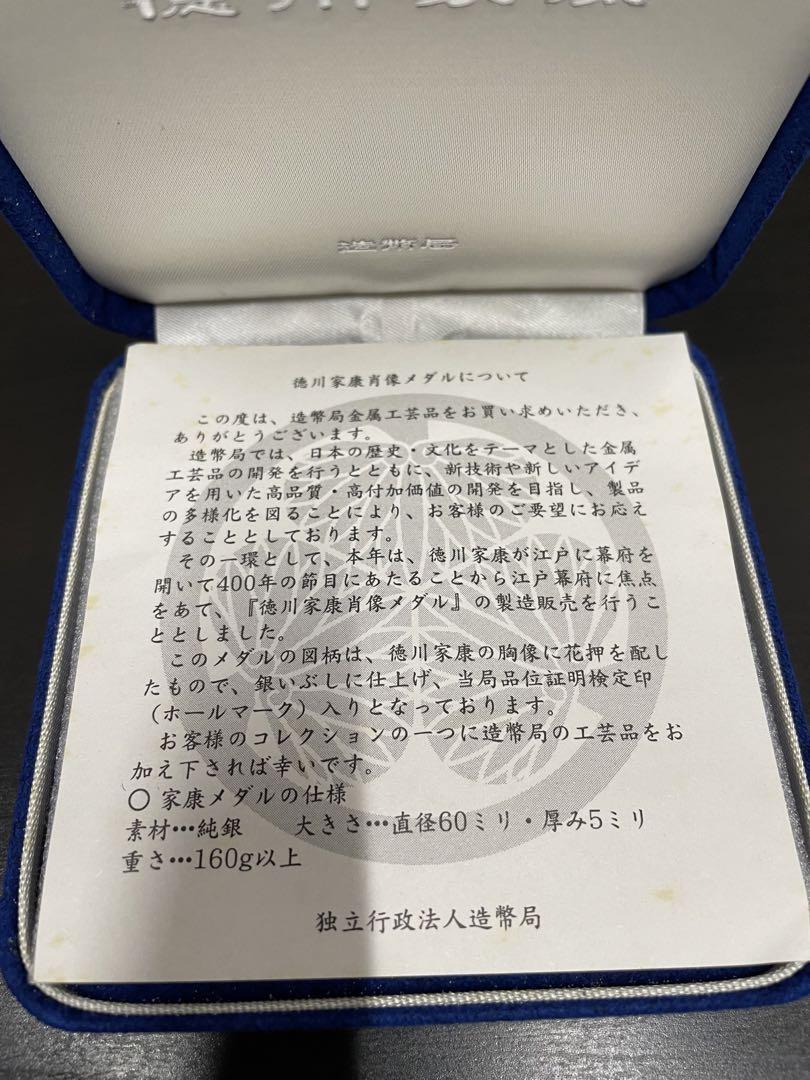 造幣局
徳川家康肖像メダルについて
この度は、造幣局金属工芸品をお買い求めいただき、
ありがとうございます。
造幣局では、日本の歴史・文化をテーマとした金属
工芸品の開発を行うとともに、新技術や新しいアイデ
アを用いた高品質・高付加価値の開発を目指し、製品
の多様化を図ることにより、お客様のご要望にお応え
することとしております。
その一環として、本年は、徳川家康が江戸に幕府を
開いて400年の節目にあたることから江戸幕府に焦点
をあて、『徳川家康肖像メダル』の製造販売を行うこ
ととしました。
このメダルの図柄は、徳川家康の胸像に花押を配し
たもので、銀いぶしに仕上げ、当局品位証明検定印
（ホールマーク）入りとなっております。
お客様のコレクションの一つに造幣局の工芸品をお
加え下されば幸いです。
○ 家康メダルの仕様
素材…純銀 大きさ…直径60ミリ・厚み5ミリ
重さ…160g以上
独立行政法人造幣局